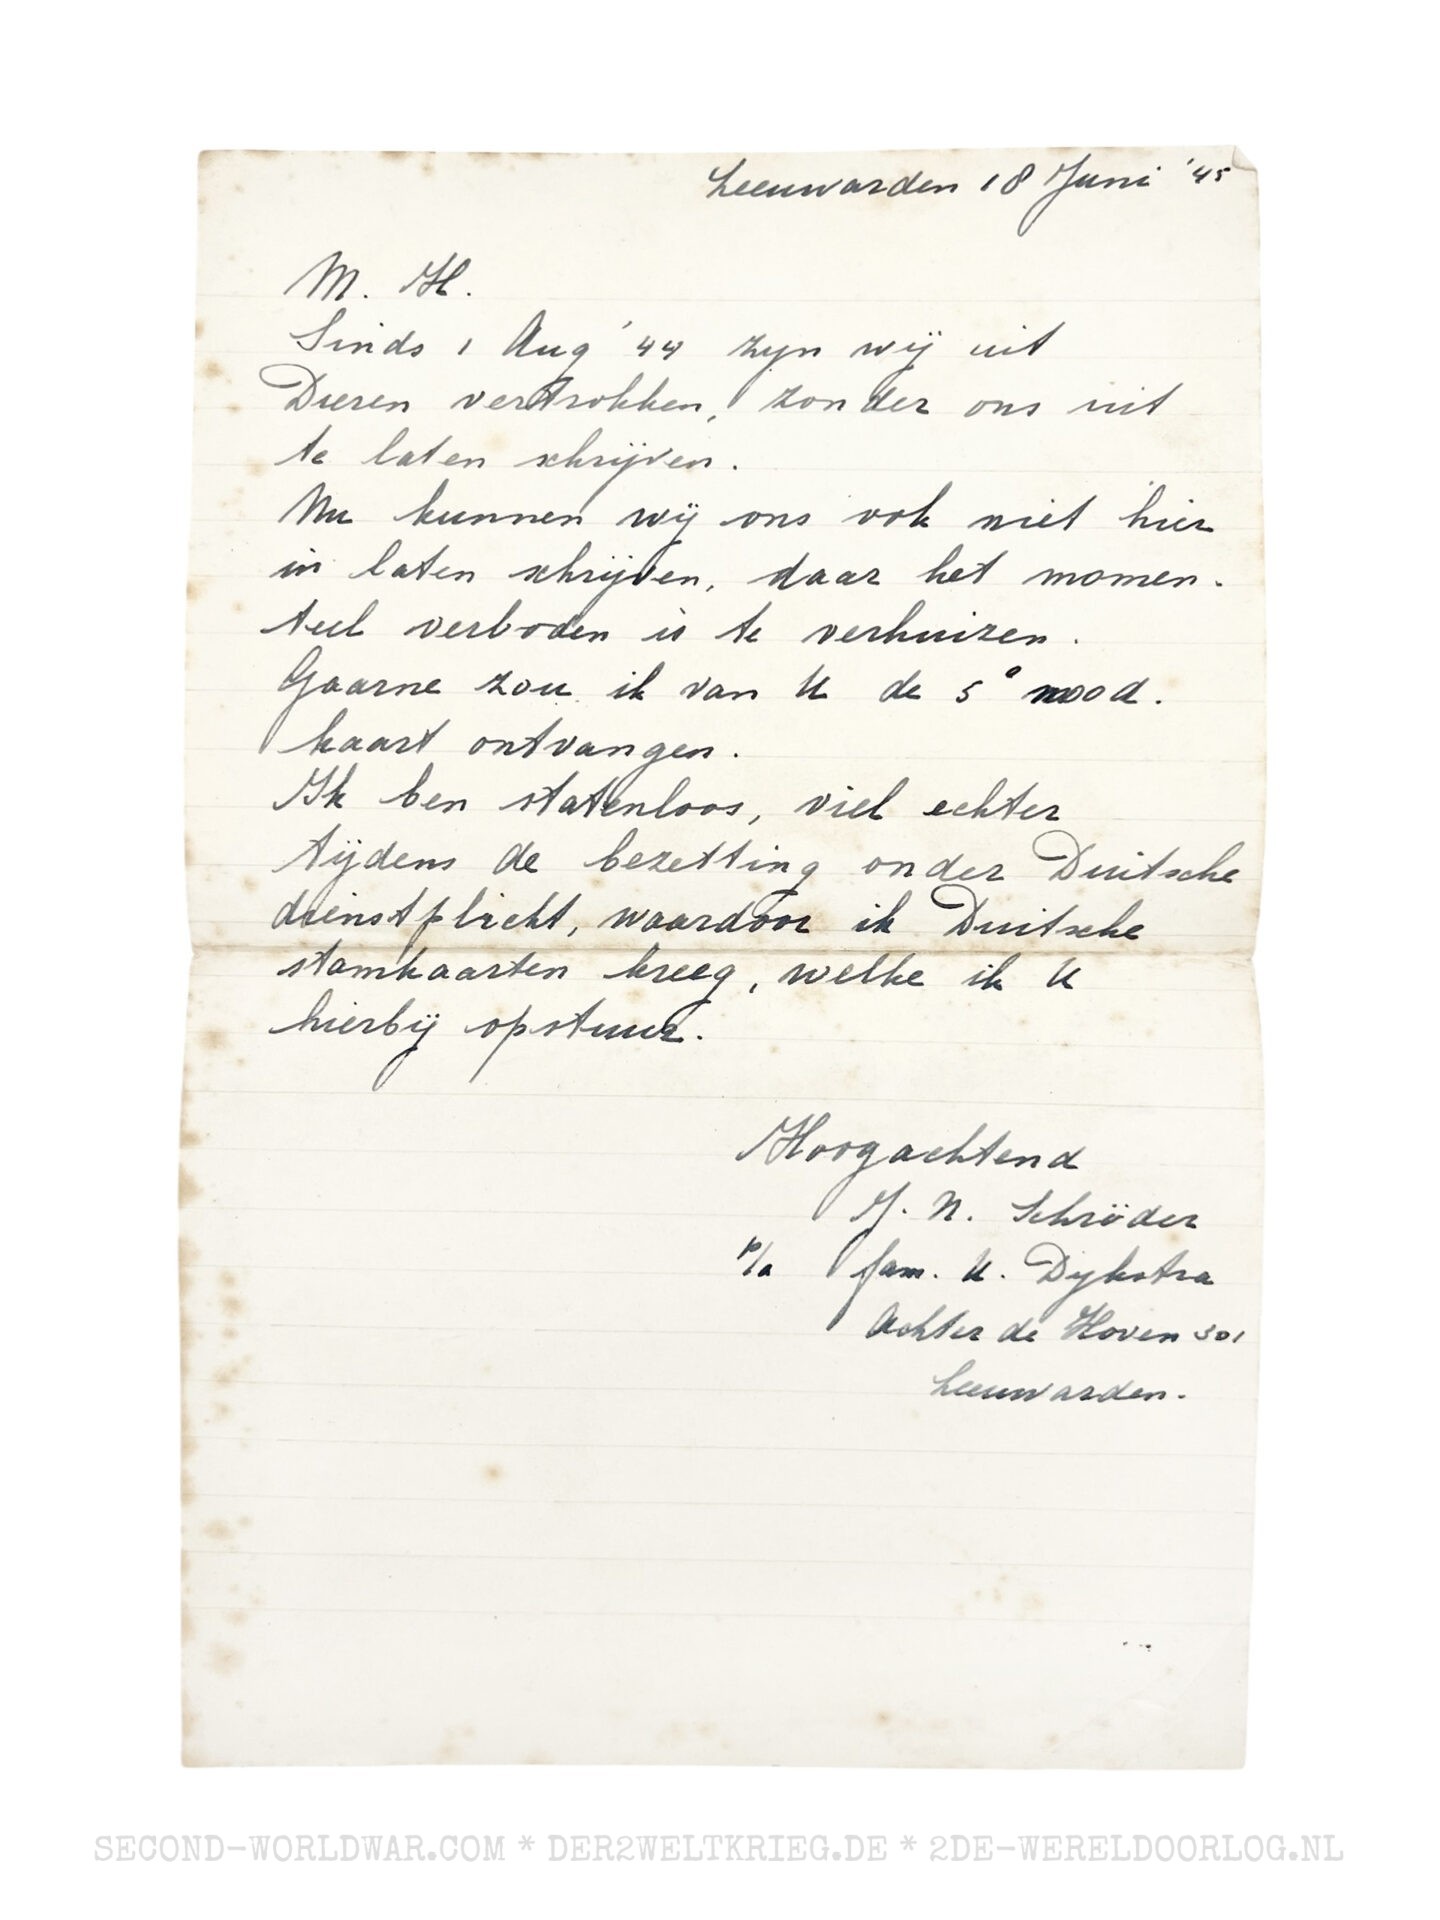 Leeuwarden 18 Juni '45
M. H.
Sinds 1 Aug '44 zijn wij uit
Dieren vertrokken, zonder ons uit
te laten schrijven.
Nu kunnen wij ons ook niet hier
in laten schrijven, daar het momen-
teel verboden is te verhuizen.
Gaarne zou ik van U de 5e nood.
kaart ontvangen.
Ik ben statenloos, viel echter
tijdens de bezetting onder Duitsche
dienstplicht, waardoor ik Duitsche
stamkaarten kreeg, welke ik U
hierbij opstuur.
Hoogachtend
J. N. Schröder
p/a fam. U. Dijkstra
Achter de Hoven 301
Leeuwarden.
SECOND-WORLDWAR.COM * DER2WELTKRIEG.DE * 2DE-WERELDOORLOG.NL